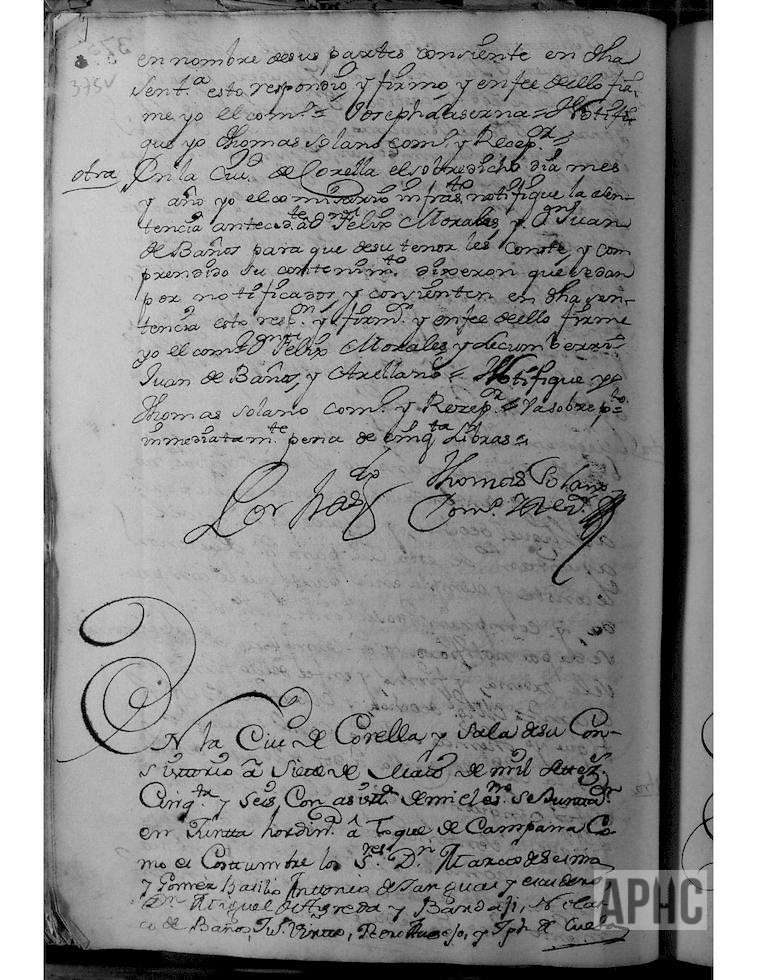 375v
en nombre desus partes consiente en dha
Sent.a esto respondio, y firmo, y enfee dello fir-
me yo el com.o = Joseph Laserna = Notifi-
que yo Thomas Solano com.o y Recep.or =
otra En la Ciu.d de Corella el sobredicho dia mes
y año yo el comisario infras.to notifique la sen-
tencia anteced.te a d.n Felix Morales, y d.n Juan
de Baños para que desu tenor les conste, y com
prendido su contenim.to dixeron que se dan
por notificados, y consienten en dha sen-
tencia esto resp.on y firm.n y enfee dello firme
yo el com.o d.n Felix Morales, y
Juan de Baños, y Arellano = Notifique yo
Thomas Solano com.o y Rezep.or = Va sobre p.to
inmediatam.te pena de cinq.ta Libras =
Thomas Solano
Com.o
EN la Ciu.d de Corella, y Sala de su Con-
sistorio â Siete de Marzo de mil settez.s
Cinq.ta y Seis, Con asist.a de mi el es.no Se Juntta.n
en Juntta hordin.a â Toque de Campana Co-
mo es Costumbre los S.res D.n Marcos de Sesma
y Gomez Basilio Antonio de Sanguas y escudero
D.n Miguel de Agreda y Bandaji, Nicolas
de Baños, y Jph de
APHC